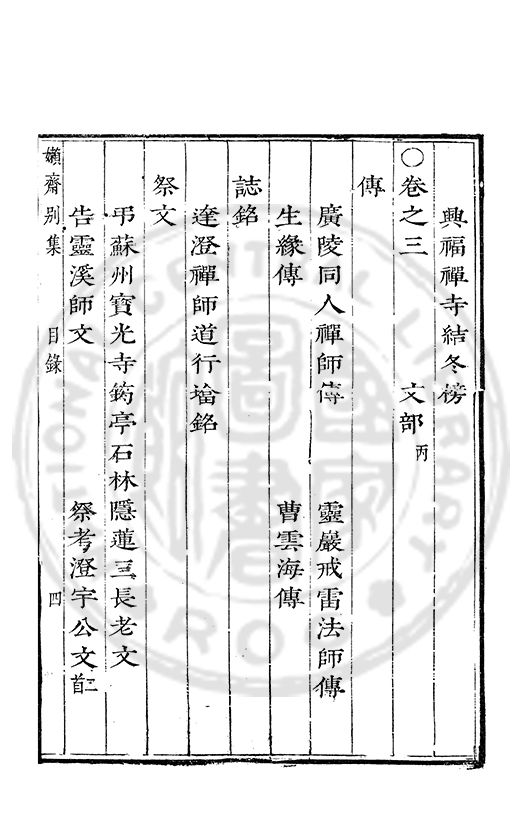 興福禪寺結冬榜
○卷之三 文部丙
傳
廣陵同人禪師傳 靈巖戒雷法師傳
生緣傳 曹雲海傳
誌銘
達澄禪師道行塔銘
祭文
弔蘇州寶光寺筠亭石林隱蓮三長老文
告靈溪師文 祭考澄宇公文二首
嬾齋别集 目錄 四